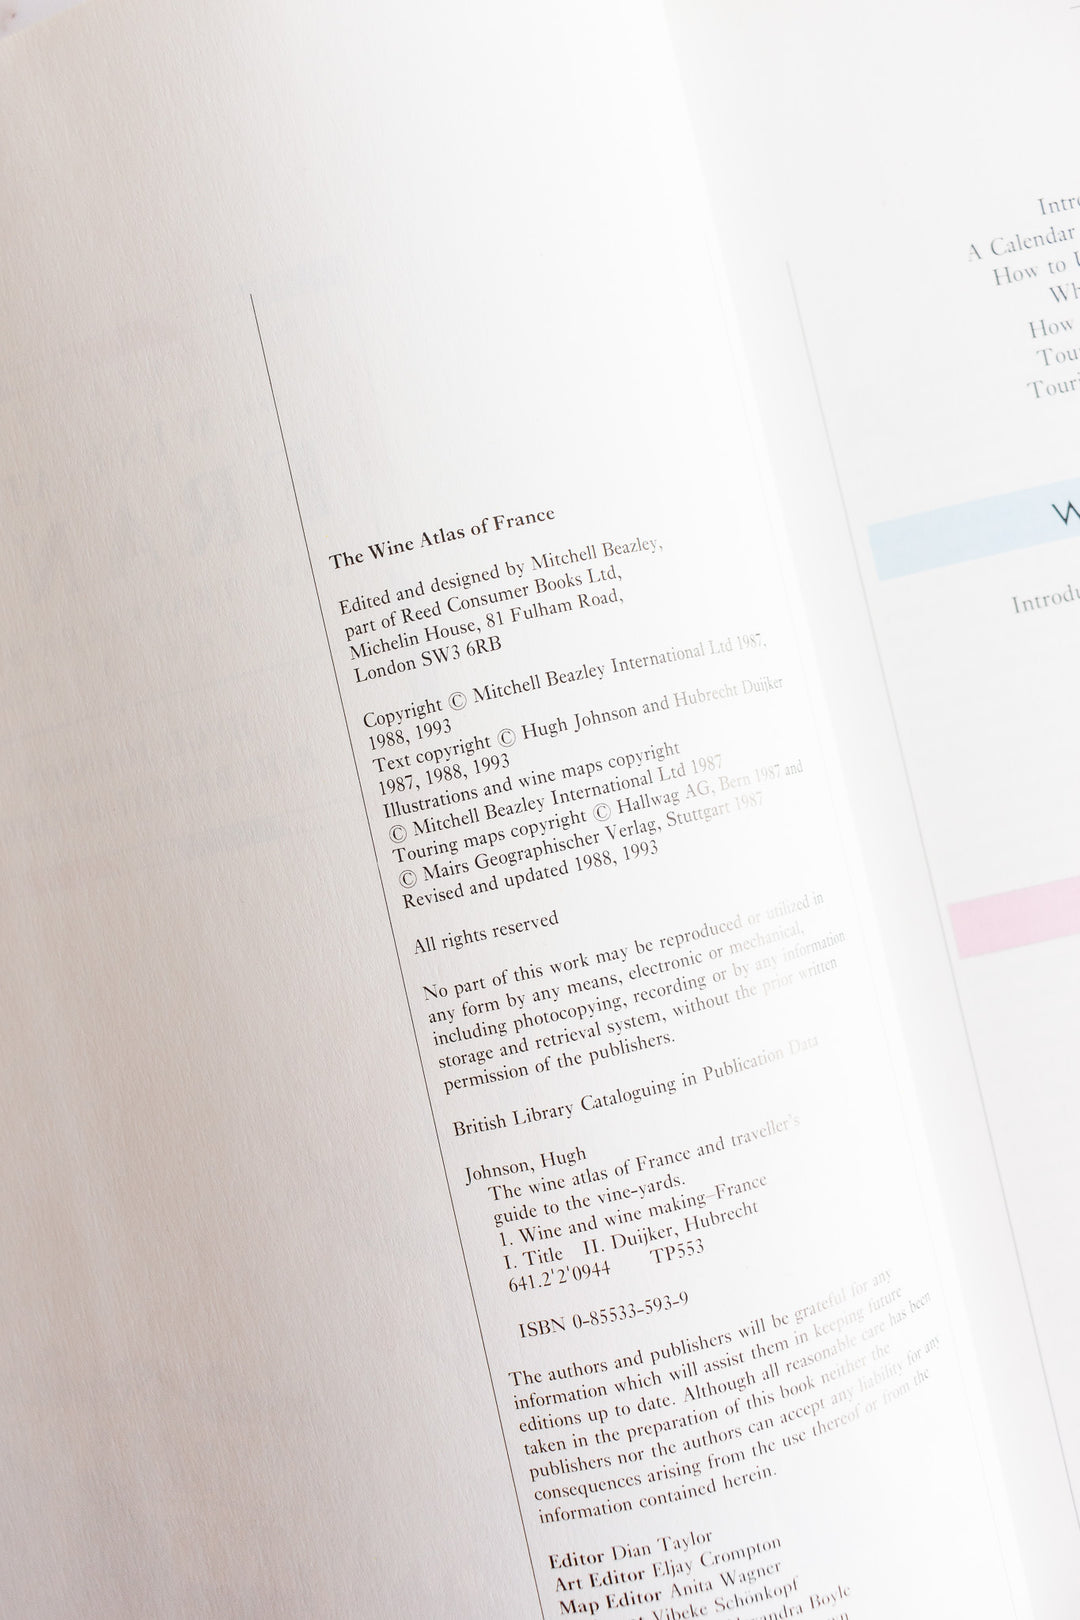 The Wine Atlas of France
Edited and designed by Mitchell Beazley,
part of Reed Consumer Books Ltd,
Michelin House, 81 Fulham Road,
London SW3 6RB
Copyright © Mitchell Beazley International Ltd 1987,
1988, 1993
Text copyright © Hugh Johnson and Hubrecht Duijker
1987, 1988, 1993
Illustrations and wine maps copyright
© Mitchell Beazley International Ltd 1987
Touring maps copyright © Hallwag AG, Bern 1987 and
© Mairs Geographischer Verlag, Stuttgart 1987
Revised and updated 1988, 1993
All rights reserved
No part of this work may be reproduced or utilized in
any form by any means, electronic or mechanical,
including photocopying, recording or by any information
storage and retrieval system, without the prior written
permission of the publishers.
British Library Cataloguing in Publication Data
Johnson, Hugh
The wine atlas of France and traveller's
guide to the vine-yards.
1. Wine and wine making–France
I. Title II. Duijker, Hubrecht
641.2'2'0944 TP553
ISBN 0-85533-593-9
The authors and publishers will be grateful for any
information which will assist them in keeping future
editions up to date. Although all reasonable care has been
taken in the preparation of this book neither the
publishers nor the authors can accept any liability for any
consequences arising from the use thereof or from the
information contained herein.
Editor Dian Taylor
Art Editor Eljay Crompton
Map Editor Anita Wagner
Vibeke Schönkopf
Boyle
A Calendar
How to
How